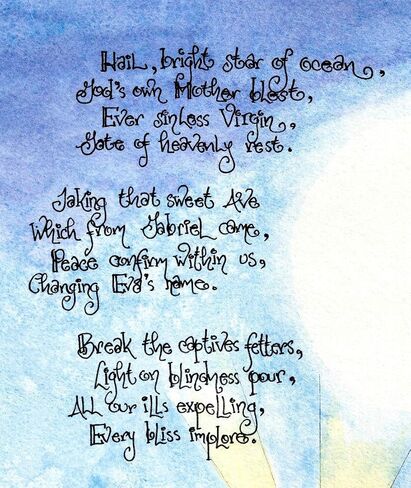 Hail, bright star of ocean,
God's own Mother blest,
Ever sinless Virgin,
Gate of heavenly rest.
Taking that sweet Ave
Which from Gabriel came,
Peace confirm within us,
Changing Eva's name.
Break the captives fetters,
Light on blindness pour,
All our ills expelling,
Every bliss implore.